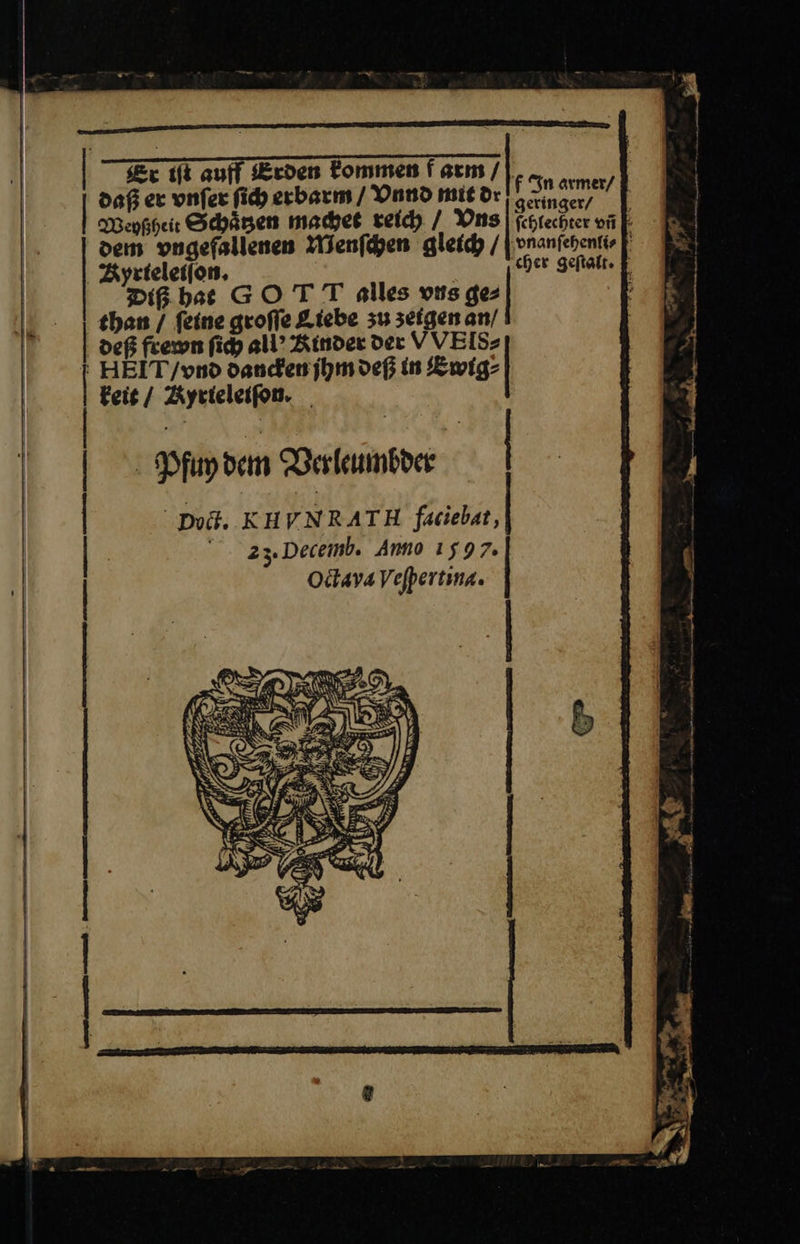 Er iſt auff Erden kommen f arm /
daß er vnſer ſich erbarm / Vnnd mit dr
Weyßheit Schaͤtzen machet reich / Vns
dem vngefallenen Menſchen gleich /
Kyrieleiſon.
Diß hat GOTT alles vns ge⸗
than / ſeine groſſe Liebe zu zeigen an/
deß frewn ſich all' Kinder der VVEIS⸗
HEIT/vnd dancken jhm deß in Ewig⸗
keit / Kyrieleiſon.
f In armer/
geringer/
ſchlechter vñ
vnanſehenli⸗
cher geſtalt.
Pfuy dem Verleumbder
Doct. KHVNRATH faciebat,
23. Decemb. Anno 1597.
Octava Veſpertina.